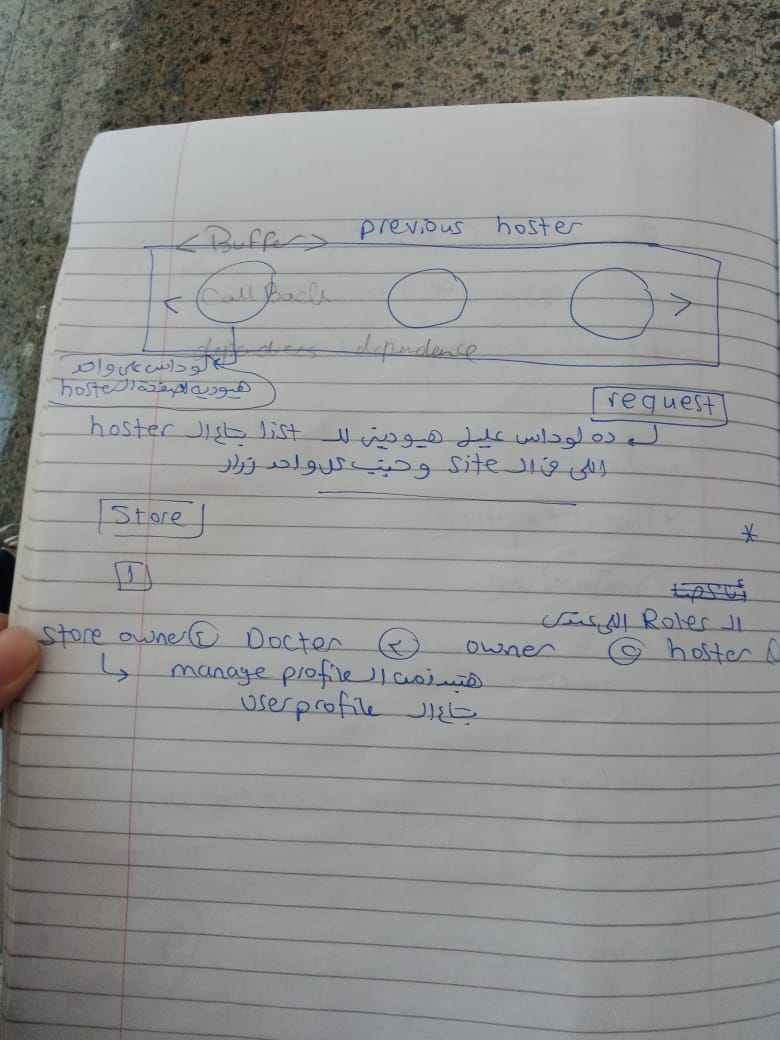 <Buffer> previous hoster
Call Back
dependences dependence
لو داس على واحد
هيوديه لصفحة الـ hoster
request
ده لو داس عليه هيودينى للـ list بتاع الـ hoster
اللى فى الـ site وجنب كل واحد زرار
Store
*
1
الـ Roles اللى عندى
hoster owner Docter store owner
manage profile هتبقى الـ
بتاع الـ user profile